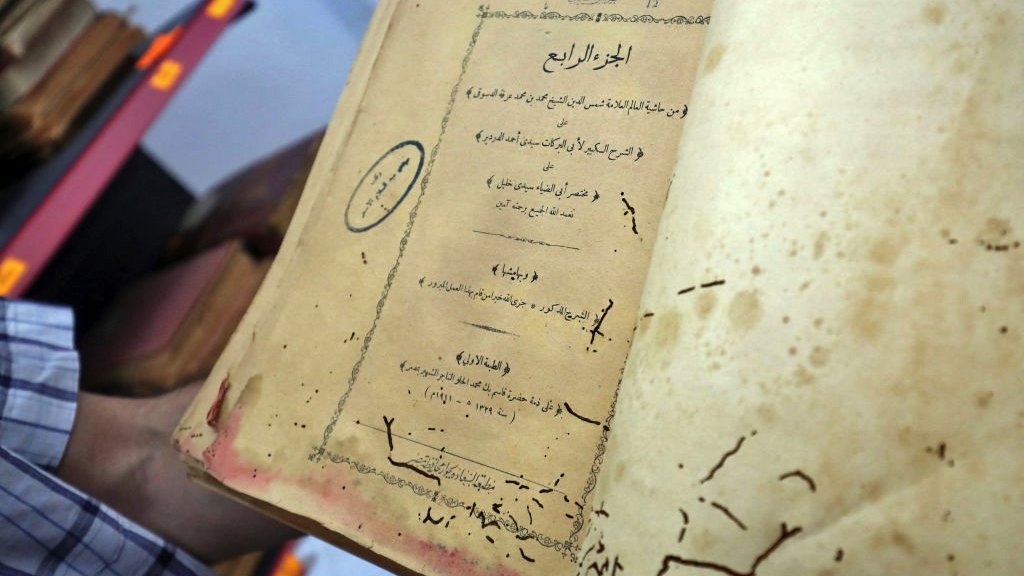 الجزء الرابع
﴿ من حاشية العالم العلامة شمس الدين الشيخ محمد بن محمد عرفة الدسوقى ﴾
على
﴿ الشرح الكبير لأبى البركات سيدى أحمد الدردير ﴾
على
﴿ مختصر أبى الضياء سيدى خليل ﴾
تغمد الله الجميع برحمته آمين
﴿ وبهامشها ﴾
﴿ الشرح المذكور * جزى الله خيرا من قام بهذا العمل المبرور ﴾
﴿ الطبعة الاولى ﴾
﴿ على ذمة حضرة قاسم بك محمد التاجر الشهير بمصر ﴾
( سنة ١٣٢٩ ه - ١٩١١ م )